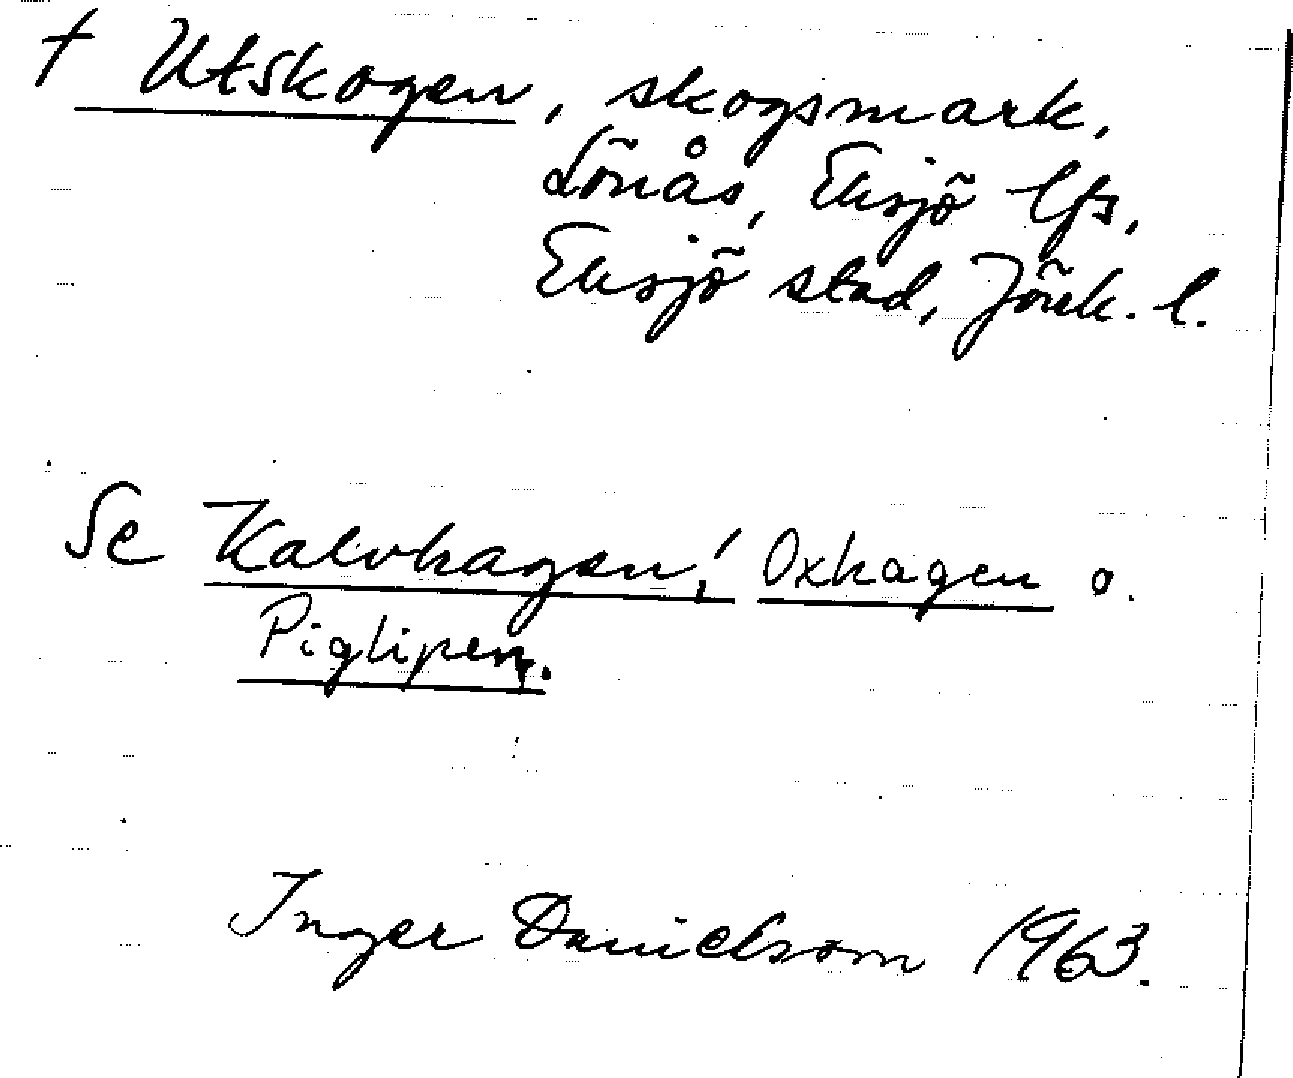 † Utskogen, skogsmark,
Lönås, Eksjö lfs,
Eksjö stad, Jönk. l.
Se Kalvhagen, Oxhagen o.
Piglipen.
Inger Danielsson 1963.